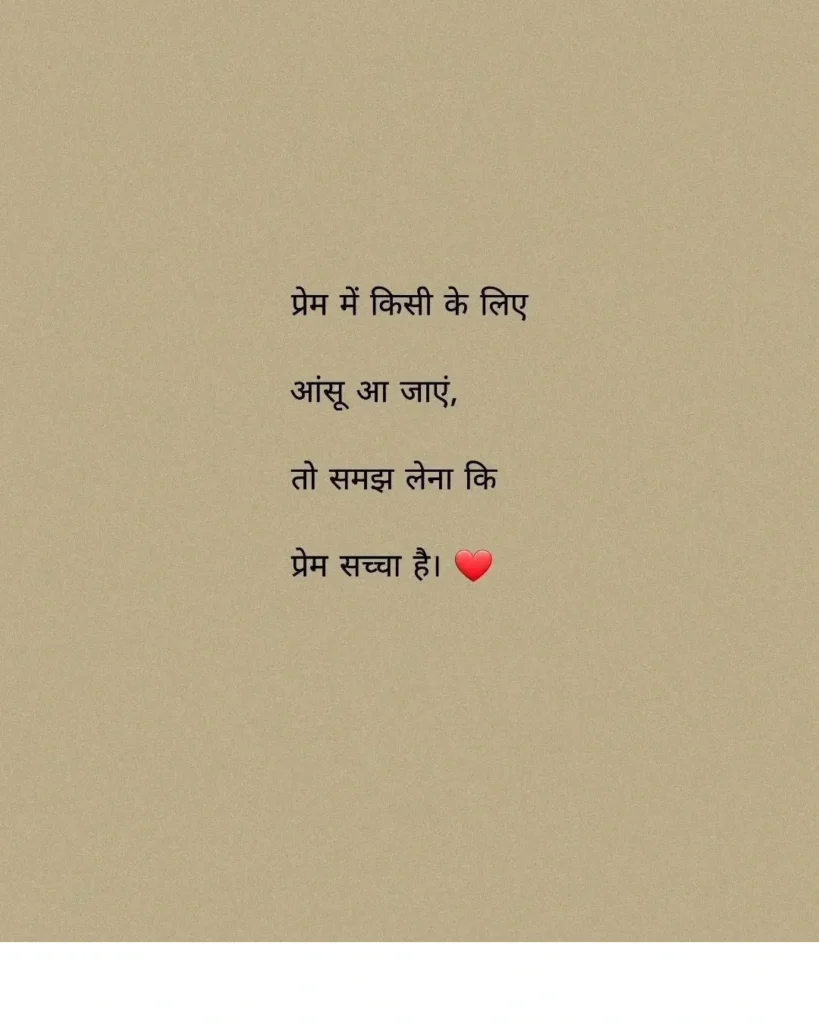 प्रेम में किसी के लिए
आंसू आ जाएं,
तो समझ लेना कि
प्रेम सच्चा है। ❤️